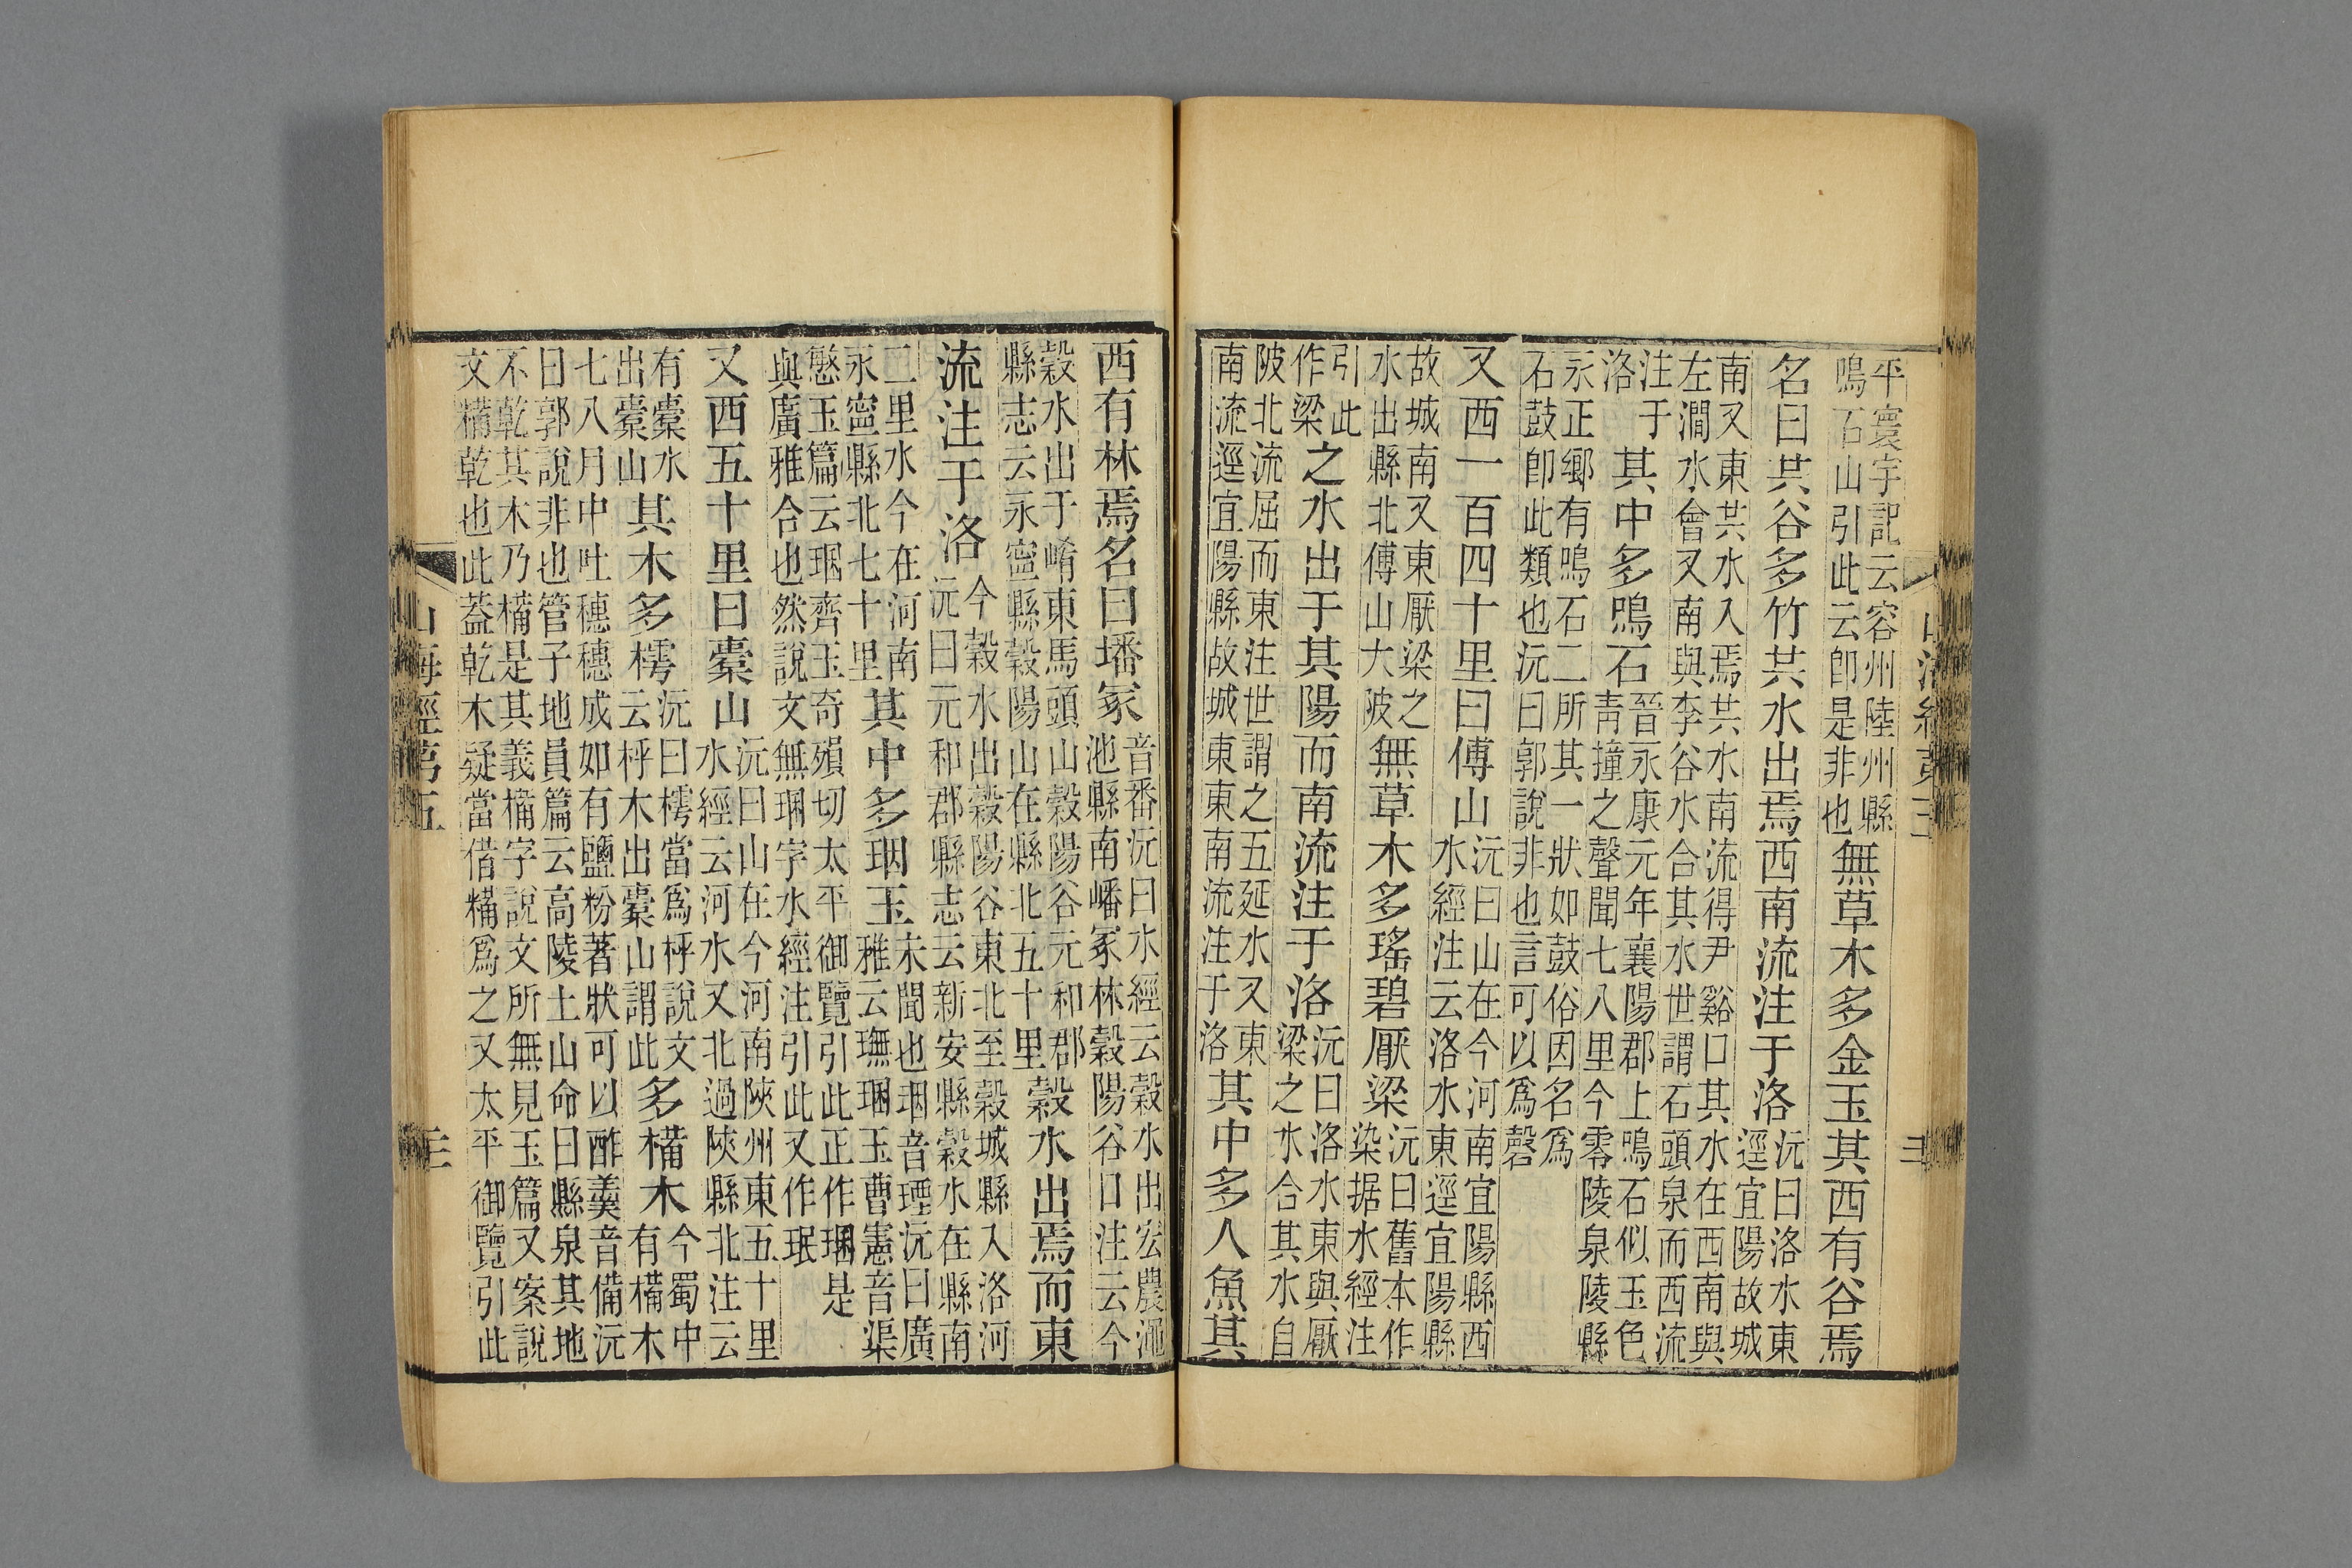 平寰宇記云容州陸州縣
鳴石山引此云卽是非也
無草木多金玉其西有谷焉
名曰共谷多竹共水出焉西南流注于洛
沅曰洛水東
逕宜陽故城
南又東共水入焉共水南流得尹谿口其水在西南與
左澗水會又南與李谷水合其水世謂石頭泉而西流
注于
洛
其中多鳴石
晉永康元年襄陽郡上鳴石似玉色
青撞之聲聞七八里今零陵泉陵縣
永正鄉有鳴石二所其一狀如鼓俗因名爲
石鼓卽此類也沅曰郭說非也言可以爲磬
又西一百四十里曰傅山
沅曰山在今河南宜陽縣西
水經注云洛水東逕宜陽縣
故城南又東厭梁之
水出縣北傅山大陂
無草木多瑤碧厭梁
沅曰舊本作
染据水經注
引此
作梁
之水出于其陽而南流注于洛
沅曰洛水東與厭
梁之水合其水自
陂北流屈而東注世謂之五延水又東
南流逕宜陽縣故城東東南流注于洛
其中多人魚其
西有林焉名曰墦冢
音番沅曰水經云穀水出宏農澠
池縣南嶓冢林穀陽谷口注云今
穀水出于崤東馬頭山穀陽谷元和郡
縣志云永寧縣穀陽山在縣北五十里
穀水出焉而東
流注于洛
今穀水出穀陽谷東北至穀城縣入洛河
沅曰元和郡縣志云新安縣穀水在縣南
二里水今在河南
永寧縣北七十里
其中多珚玉
未聞也珚音堙沅曰廣
雅云璑琄玉曹憲音渠
慇玉篇云琄齊玉奇殞切太平御覽引此正作琄是
與廣雅合也然說文無琄字水經注引此又作珉
又西五十里曰橐山
沅曰山在今河南陝州東五十里
水經云河水又北過陝縣北注云
有橐水
出橐山
其木多樗
沅曰樗當爲枰說文
云枰木出橐山謂此
多㯅木
今蜀中
有㯅木
七八月中吐穗穗成如有鹽粉著狀可以酢羹音備沅
曰郭說非也管子地員篇云高陵土山命曰縣泉其地
不乾其木乃㯅是其義㯅字說文所無見玉篇又案說
文糒乾也此蓋乾木疑當借糒爲之又太平御覽引此
山海經第五
三